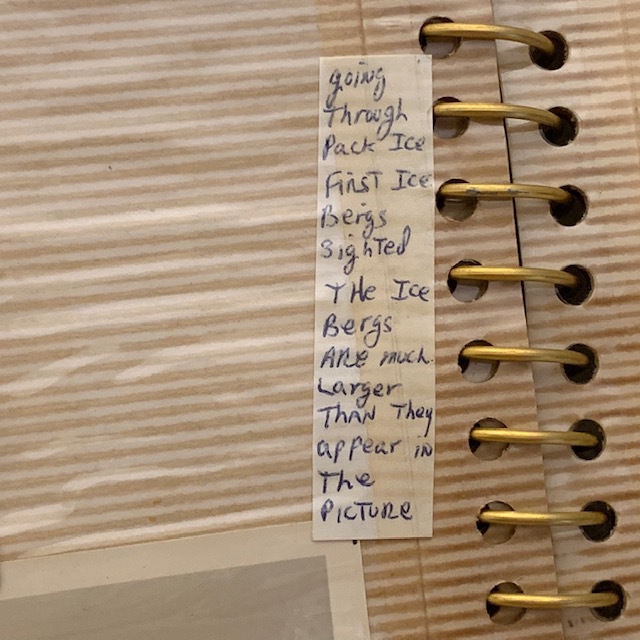 going
Through
Pack Ice
First Ice
Bergs
Sighted
THe Ice
Bergs
ARe much
Larger
THAN They
appear in
The
PICTURE